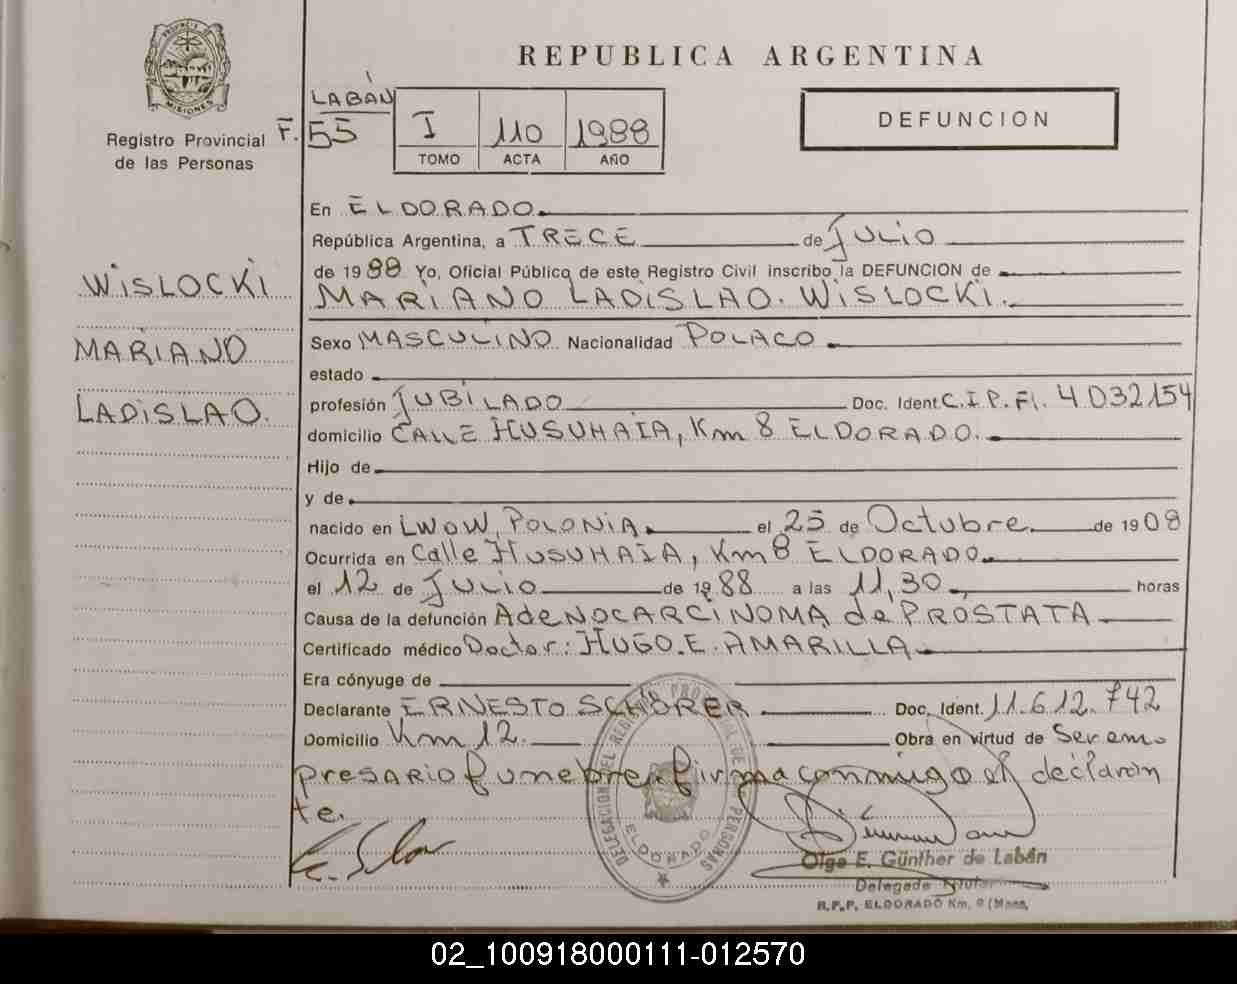 PROVINCIA DE
MISIONES
Registro Provincial
de las Personas
REPUBLICA ARGENTINA
LABÁN
F. 55
I 110 1988
TOMO ACTA AÑO
DEFUNCION
WISLOCKI
MARIANO
LADISLAO.
En ELDORADO.
República Argentina, a TRECE de JULIO
de 1988 Yo, Oficial Público de este Registro Civil inscribo la DEFUNCION de
MARIANO LADISLAO. WISLOCKI.
Sexo MASCULINO Nacionalidad POLACO
estado
profesión JUBILADO Doc. Ident. C.I.P.FI. 4032154
domicilio CALLE HUSUHAIA, Km 8 ELDORADO.
Hijo de
y de
nacido en LWOW, POLONIA. el 25 de Octubre de 1908
Ocurrida en Calle HUSUHAIA, Km 8 ELDORADO.
el 12 de JULIO de 1988 a las 11,30 horas
Causa de la defunción AdeNOCARCINOMA de PROSTATA
Certificado médico Doctor: HUGO.E.AMARILLA
Era cónyuge de
Declarante ERNESTO SCHÖRER Doc. Ident. 11.612.742
Domicilio Km 12. Obra en virtud de Ser em-
presario funebre. firma conmigo el declaran
te.
DELEGACION DEL REGISTRO PROVINCIAL DE PERSONAS
ELDORADO
Olga E. Günther de Labán
Delegada Titular
R.P.P. ELDORADO Km. 9 (Mnes.
02_100918000111-012570